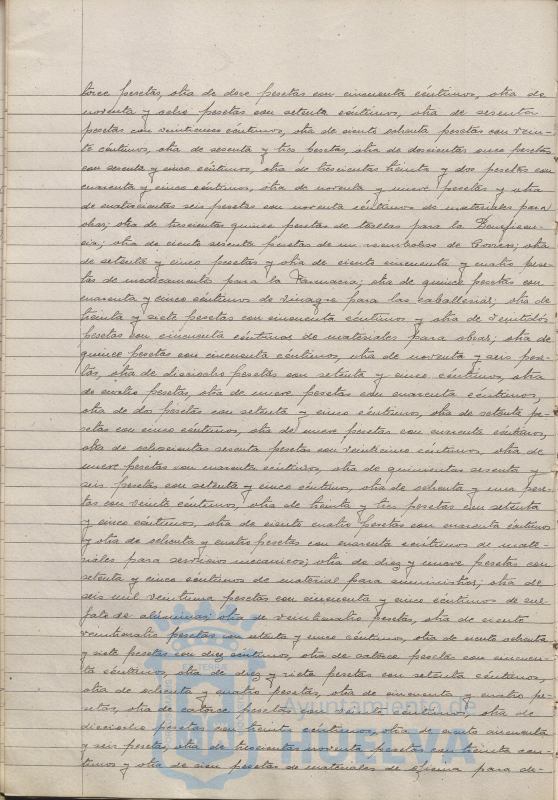 torce pesetas, otra de doce pesetas con cincuenta céntimos, otra de
noventa y ocho pesetas con setenta céntimos, otra de sesenta
pesetas con veinticinco céntimos, otra de ciento ochenta pesetas con vein-
te céntimos, otra de sesenta y tres pesetas, otra de doscientas once pesetas
con sesenta y cinco céntimos, otra de trescientas treinta y dos pesetas con
cuarenta y cinco céntimos, otra de noventa y nueve pesetas y otra
de cuatrocientas seis pesetas con noventa céntimos de materiales para
obras; otra de trescientas quince pesetas de para la Beneficen-
cia; otra de ciento sesenta pesetas de un reembolso de Correos; otra
de setenta y cinco pesetas y otra de ciento cincuenta y cuatro pese-
tas de medicamentos para la Farmacia; otra de quince pesetas con
cuarenta y cinco céntimos de vinagre para las caballerias; otra de
treinta y siete pesetas con cincuenta céntimos y otra de veintidós
pesetas con cincuenta céntimos de materiales para obras; otra de
quince pesetas con cincuenta céntimos, otra de noventa y seis pese-
tas, otra de dieciocho pesetas con setenta y cinco céntimos, otra
de cuatro pesetas, otra de nueve pesetas con cuarenta céntimos,
otra de dos pesetas con setenta y cinco céntimos, otra de setenta pe-
setas con cinco céntimos, otra de nueve pesetas con cuarenta céntimos,
otra de ochocientas sesenta pesetas con veinticinco céntimos, otra de
nueve pesetas con cuarenta céntimos, otra de quinientas sesenta y
seis pesetas con setenta y cinco céntimos, otra de ochenta y una pese-
tas con veinte céntimos, otra de treinta y tres pesetas con setenta
y cinco céntimos, otra de ciento cuatro pesetas con cuarenta céntimos
y otra de ochenta y cuatro pesetas con cuarenta céntimos de mate-
riales para servicios mecanicos; otra de diez y nueve pesetas con
setenta y cinco céntimos de material para suministros; otra de
seis mil veintiuna pesetas con cincuenta y cinco céntimos de sul-
fato de alúmina; otra de veinticuatro pesetas, otra de ciento
veinticuatro pesetas con setenta y cinco céntimos, otra de ciento ochenta
y siete pesetas con diez céntimos, otra de catorce pesetas con cincuen-
ta céntimos, otra de diez y siete pesetas con setenta céntimos,
otra de ochenta y cuatro pesetas, otra de cincuenta y cuatro pe-
setas, otra de catorce pesetas con veinte céntimos, otra de
dieciocho pesetas con treinta céntimos, otra de ciento cincuenta
y seis pesetas, otra de trescientas noventa pesetas con treinta cén-
timos y otra de cien pesetas de materiales de oficina para de-
Ayuntamiento de
HUELVA